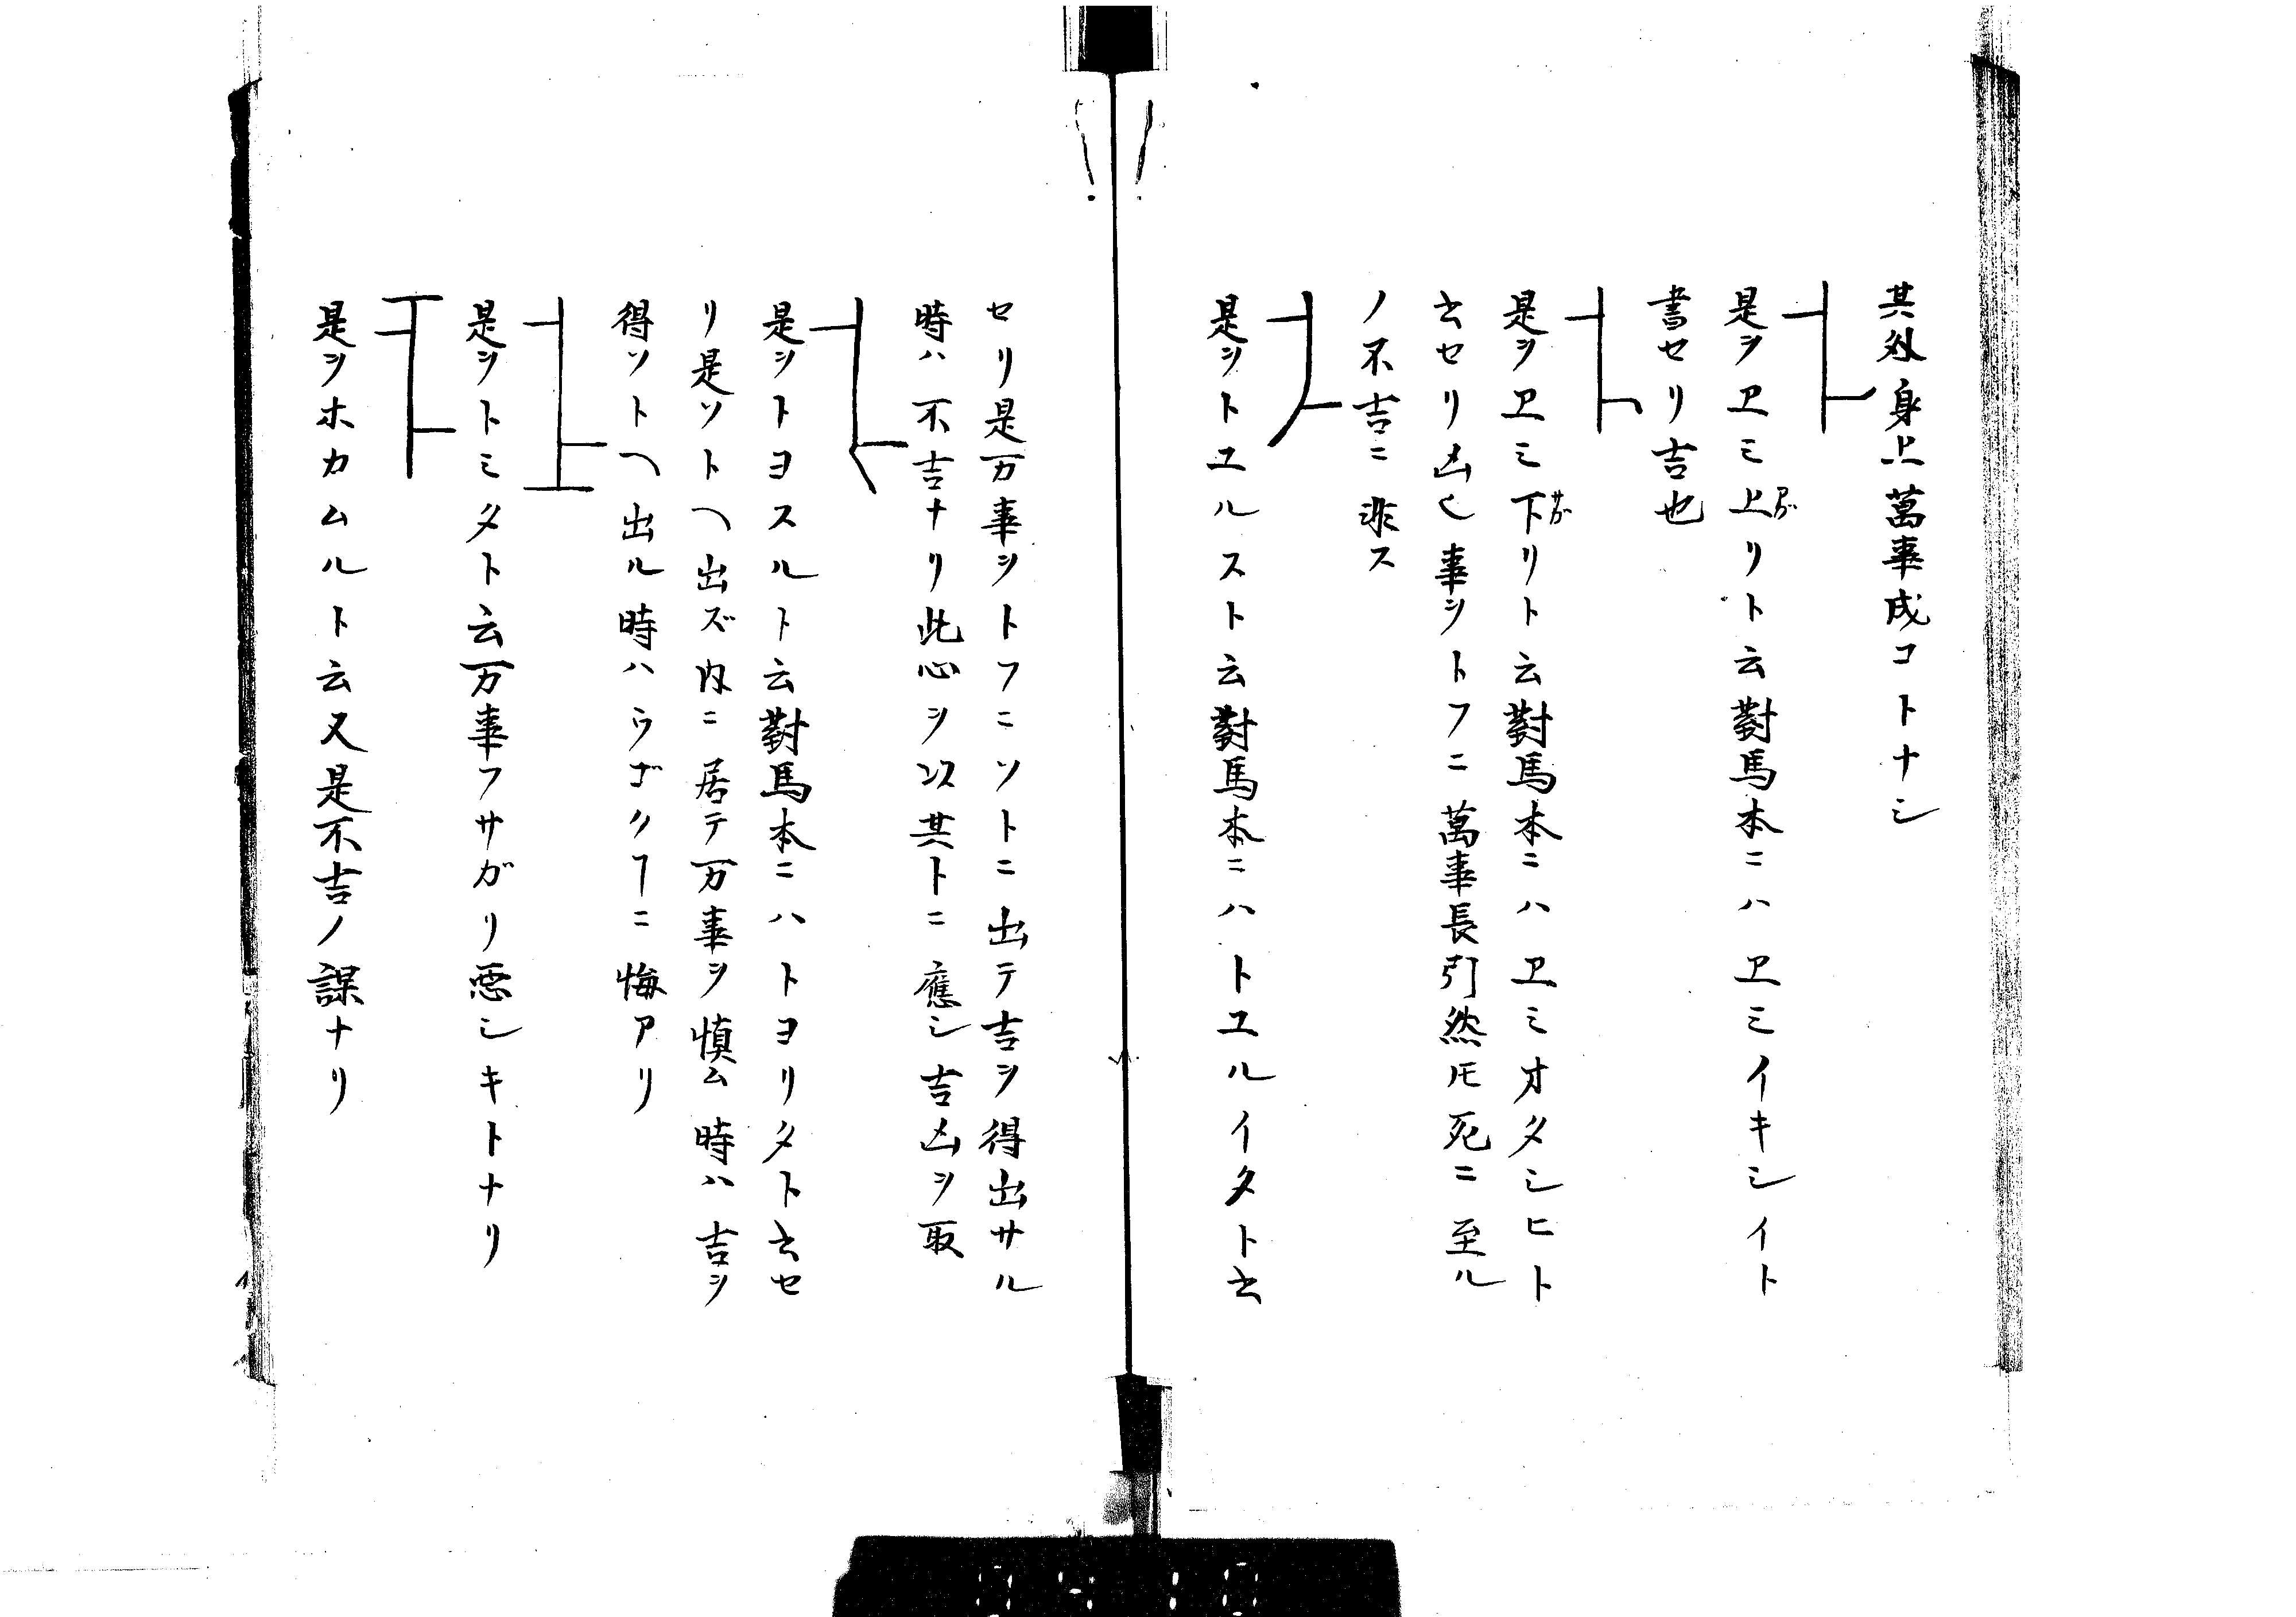 其外身上萬事成コトナシ
是ヲヱミ上アガリト云對馬本ニハヱミイキシイト
書セリ吉也
是ヲヱミ下サガリト云對馬本ニハヱミオタシヒト
云セリ凶ク事ヲトフニ萬事長引然𪜈死ニ至ル
ノ不吉ニ非ス
是ヲトユルスト云對馬本ニハトユルイタト云
セリ是万事ヲトフニソトニ出テ吉ヲ得出サル
時ハ不吉ナリ此心ヲ以其トニ應シ吉凶ヲ取
是ヲトヨスルト云對馬本ニハトヨリタト云セ
リ是ソトヘ出ズ内ニ居テ万事ヲ慎ム時ハ吉ヲ
得ソトヘ出ル時ハウゴクヿニ悔アリ
是ヲトミタト云万事フサガリ悪シキトナリ
是ヲホカムルト云又是不吉ノ謀ナリ